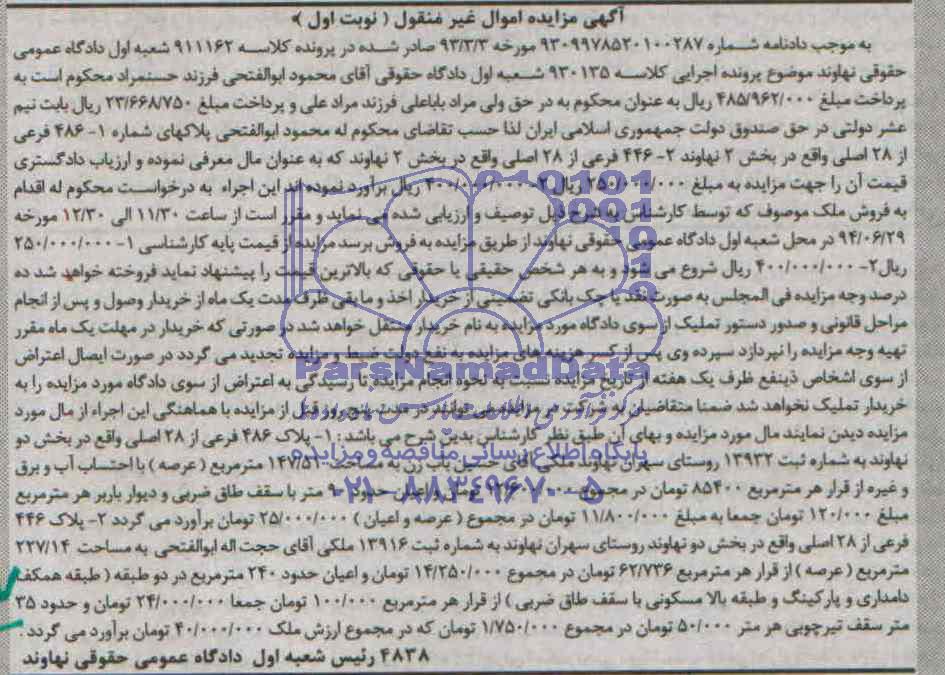 آگهی مزایده اموال غیر منقول ( نوبت اول )
به موجب دادنامه شماره ۹۳۰۹۹۷۸۵۲۰۱۰۰۲۸۷ مورخه ۹۳/۳/۳ صادر شده در پرونده کلاسه ۹۱۱۱۶۲ شعبه اول دادگاه عمومی
حقوقی نهاوند موضوع پرونده اجرایی کلاسه ۹۳۰۱۳۵ شعبه اول دادگاه حقوقی آقای محمود ابوالفتحی فرزند حسنمراد محکوم است به
پرداخت مبلغ ۴۸۵/۹۶۲/۰۰۰ ریال به عنوان محکوم به در حق ولی مراد باباعلی فرزند مراد علی و پرداخت مبلغ ۲۳/۶۶۸/۷۵۰ ریال بابت نیم
عشر دولتی در حق صندوق دولت جمهوری اسلامی ایران لذا حسب تقاضای محکوم له محمود ابوالفتحی پلاکهای شماره ۱- ۴۸۶ فرعی
از ۲۸ اصلی واقع در بخش ۲ نهاوند ۲- ۴۴۶ فرعی از ۲۸ اصلی واقع در بخش ۲ نهاوند که به عنوان مال معرفی نموده و ارزیاب دادگستری
قیمت آن را جهت مزایده به مبلغ ۲۵۰/۰۰۰/۰۰۰ ریال ۲- ۴۰۰/۰۰۰/۰۰۰ ریال برآورد نموده اند این اجراء به درخواست محکوم له اقدام
به فروش ملک موصوف که توسط کارشناس به شرح ذیل توصیف و ارزیابی شده می نماید و مقرر است از ساعت ۱۱/۳۰ الی ۱۲/۳۰ مورخه
۹۴/۰۶/۲۹ در محل شعبه اول دادگاه عمومی حقوقی نهاوند از طریق مزایده به فروش برسد مزایده از قیمت پایه کارشناسی ۱- ۲۵۰/۰۰۰/۰۰۰
ریال ۲- ۴۰۰/۰۰۰/۰۰۰ ریال شروع می شود و به هر شخص حقیقی یا حقوقی که بالاترین قیمت را پیشنهاد نماید فروخته خواهد شد ده
درصد وجه مزایده فی المجلس به صورت نقد یا چک بانکی تضمینی از خریدار اخذ و ما بقی ظرف مدت یک ماه از خریدار وصول و پس از انجام
مراحل قانونی و صدور دستور تملیک از سوی دادگاه مورد مزایده به نام خریدار منتقل خواهد شد در صورتی که خریدار در مهلت یک ماه مقرر
تهیه وجه مزایده را نپردازد سپرده وی پس از کسر هزینه های مزایده به نفع دولت ضبط و مزایده تجدید می گردد در صورت ایصال اعتراض
از سوی اشخاص ذینفع ظرف یک هفته از تاریخ مزایده نسبت به نحوه انجام مزایده تا رسیدگی به اعتراض از سوی دادگاه مورد مزایده را به
خریدار تملیک نخواهد شد ضمنا متقاضیان به شرکت در مزایده می توانند در مدت پنج روز قبل از مزایده با هماهنگی این اجراء از مال مورد
مزایده دیدن نمایند مال مورد مزایده و بهای آن طبق نظر کارشناس بدین شرح می باشد : ۱- پلاک ۴۸۶ فرعی از ۲۸ اصلی واقع در بخش دو
نهاوند به شماره ثبت ۱۳۹۳۲ روستای سهران نهاوند ملکی آقای حسین باب زن به مساحت ۱۴۷/۵۱ مترمربع ( عرصه ) با احتساب آب و برق
و غیره از قرار هر مترمربع ۸۵۴۰۰ تومان در مجموع تومان و اعیان حدود ۹۰ متر با سقف طاق ضربی و دیوار باربر هر مترمربع
مبلغ ۱۲۰/۰۰۰ تومان جمعا به مبلغ ۱۱/۸۰۰/۰۰۰ تومان در مجموع ( عرصه و اعیان ) ۲۵/۰۰۰/۰۰۰ تومان برآورد می گردد ۲- پلاک ۴۴۶
فرعی از ۲۸ اصلی واقع در بخش دو نهاوند روستای سهران نهاوند به شماره ثبت ۱۳۹۱۶ ملکی آقای حجت اله ابوالفتحی به مساحت ۲۲۷/۱۴
مترمربع ( عرصه ) از قرار هر مترمربع ۶۲/۷۳۶ تومان در مجموع ۱۴/۲۵۰/۰۰۰ تومان و اعیان حدود ۲۴۰ مترمربع در دو طبقه ( طبقه همکف
دامداری و پارکینگ و طبقه بالا مسکونی با سقف طاق ضربی ) از قرار هر مترمربع ۱۰۰/۰۰۰ تومان جمعا ۲۴/۰۰۰/۰۰۰ تومان و حدود ۳۵
متر سقف تیرچوبی هر متر ۵۰/۰۰۰ تومان در مجموع ۱/۷۵۰/۰۰۰ تومان که در مجموع ارزش ملک ۴۰/۰۰۰/۰۰۰ تومان برآورد می گردد .
۴۸۳۸ رئیس شعبه اول دادگاه عمومی حقوقی نهاوند
ParsNamadData
پایگاه اطلاع رسانی مناقصه و مزایده
۰۲۱-۸۸۳۴۹۶۷۰-۵